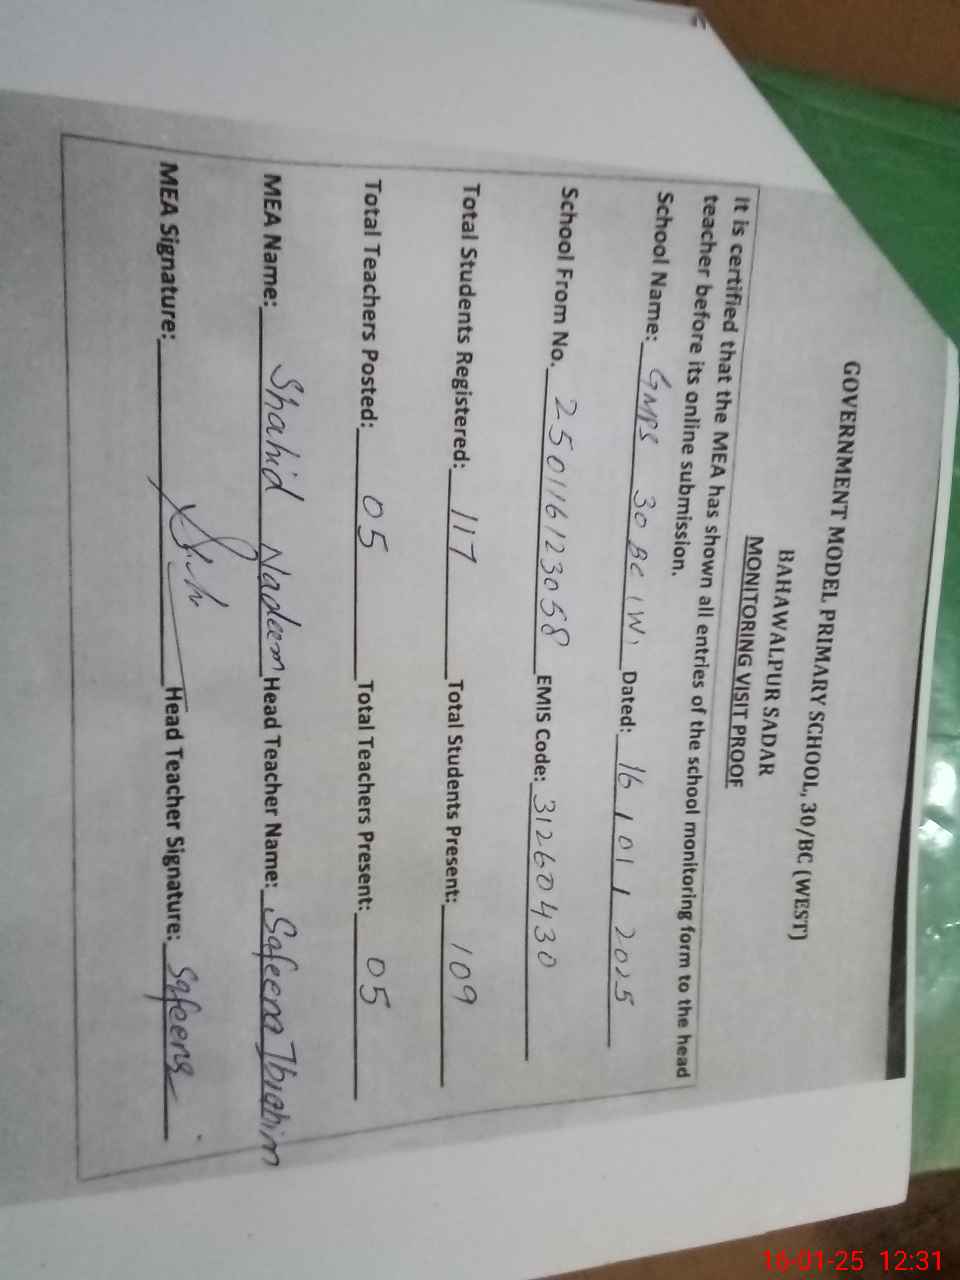 GOVERNMENT MODEL PRIMARY SCHOOL, 30/BC (WEST)
BAHAWALPUR SADAR
MONITORING VISIT PROOF
It is certified that the MEA has shown all entries of the school monitoring form to the head
teacher before its online submission.
School Name: GMPS 30 BC (W) Dated: 16 / 01 / 2025
School From No. 2501161230 58 EMIS Code: 31260430
Total Students Registered: 117 Total Students Present: 109
Total Teachers Posted: 05 Total Teachers Present: 05
MEA Name: Shahid Nadeem Head Teacher Name: Safeena Ibrahim
MEA Signature: Head Teacher Signature: Safeena
16-01-25 12:31